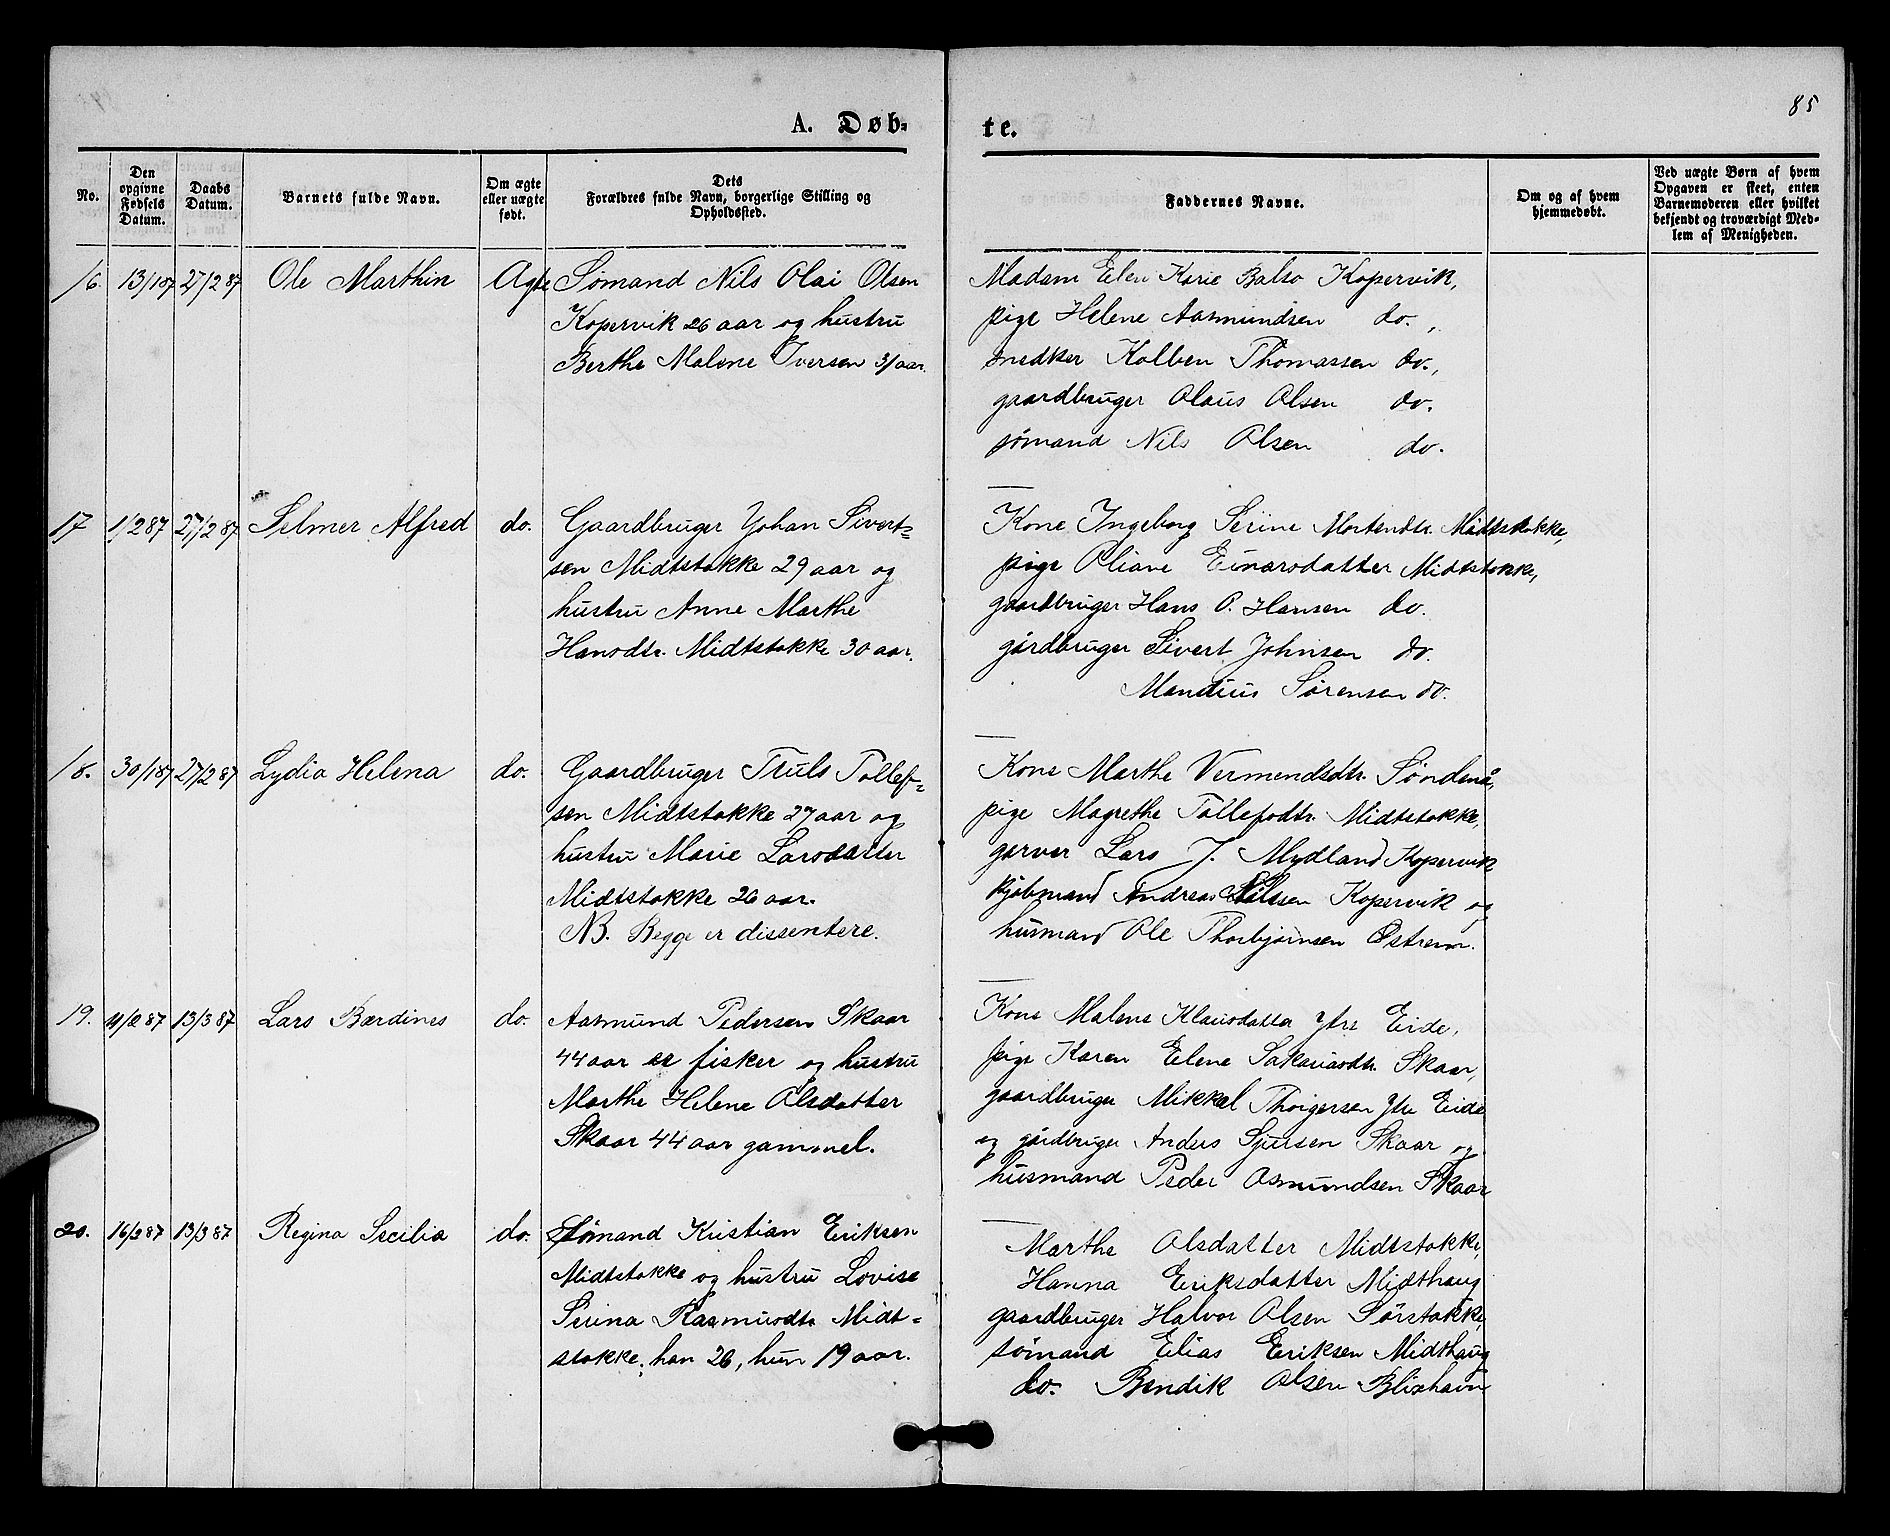 85
A. Døb-
te.
No.
Den opgivne Fødsels Datum.
Daabs Datum.
Barnets fulde Navn.
Om ægte eller uægte født.
Dets Forældres fulde Navn, borgerlige Stilling og Opholdssted.
Faddernes Navne.
Om og af hvem hjemmedøbt.
Ved uægte Børn af hvem Opgaven er skeet, enten Barnemoderen eller hvilket bekjendt og troværdigt Medlem af Menigheden.
16. 13/1 87 27/2 87 Ole Marthin Ægte Sømand Nils Olai Olsen
Kopervik 26 aar og hustru
Berthe Malene Iversen 31 aar.
Madam Elen Karie Balso Kopervik,
pige Helene Aasmundsen do.,
snedker Kolben Thomassen do.,
gaardbruger Olaus Olsen do.
sømand Nils Olsen do.
17 1/2 87 27/2 87 Selmer Alfred do. Gaardbruger Johan Sivert=
sen Midtstokke 29 aar og
hustru Anne Marthe
Hansdtr. Midtstokke 30 aar.
Kone Ingeborg Serine Mortendtr. Midtstokke,
pige Oliane Einarsdatter Midtstokke,
gaardbruger Hans O. Hansen do.
gårdbruger Sivert Johnsen do.
Mandius Sørensen do.
18. 30/1 87 27/2 87 Lydia Helena do. Gaardbruger Truls Tollef=
sen Midtstokke 27 aar og
hustru Marie Larsdatter
Midtstokke 26 aar.
NB. Begge er dissentere.
Kone Marthe Vermendsdtr. Søndenå,
pige Magrethe Tollefsdtr. Midtstokke,
garver Lars J. Mydland Kopervik
kjøbmand Andreas Nilssen Kopervik og
husmand Ole Thorbjørnsen Østrem.
19. 11/2 87 13/3 87 Lars Bærdines do. Aasmund Pedersen Skaar
44 aar er fisker og hustru
Marthe Helene Olsdatter
Skaar 44 aar gammel.
Kone Malene Klausdatter Ytre Eide,
pige Karen Elene Sakariasdtr. Skaar,
gaardbruger Mikkel Thorgersen Ytre Eide
og gårdbruger Anders Sjursen Skaar og
husmand Peder Osmundsen Skaar
20. 16/2 87 13/3 87 Regina Secilia do. Sømand Kristian Eriksen
Midtstokke og hustru Lovise
Serina Rasmusdtr Midt=
stokke, han 26, hun 19 aar.
Marthe Olsdatter Midtstokke,
Hanna Eriksdatter Midthaug
gaardbruger Halvor Olsen Sørstokke,
sømand Elias Eriksen Midthaug
do. Bendik Olsen Blixhavn